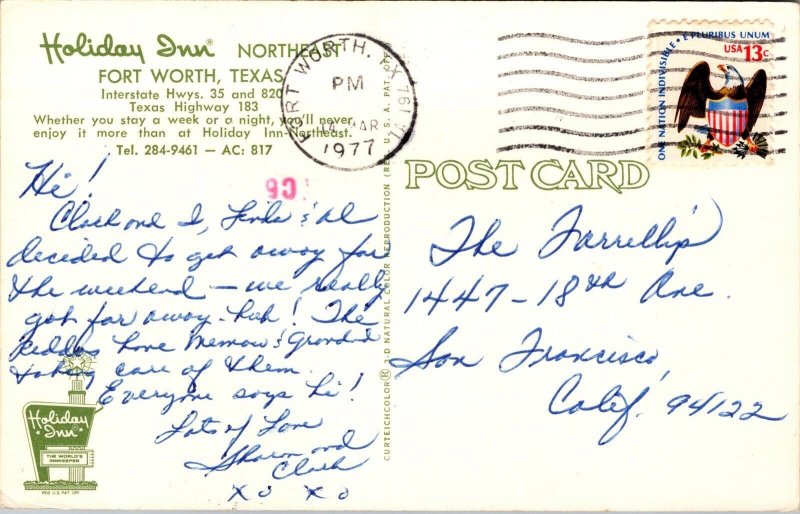 Holiday Inn® NORTHEAST
FORT WORTH, TEXAS
Interstate Hwys. 35 and 820
Texas Highway 183
Whether you stay a week or a night, you'll never
enjoy it more than at Holiday Inn-Northeast.
Tel. 284-9461 — AC: 817
FORT WORTH, TX 761
PM
MAR
1977
E PLURIBUS UNUM
USA 13c
ONE NATION INDIVISIBLE
POST CARD
Hi!
Clark and I, Linda & Al
decided to get away for
the weekend — we really
got far away - huh! The
kiddos have Memaw & Grandad
taking care of them.
Everyone says hi!
Lots of Love
Sharon and
Clark
x o x o
The Farrellys
1447 - 18th Ave.
San Francisco,
Calif. 94122
CURTEICHCOLOR® 3-D NATURAL COLOR REPRODUCTION (REG. U.S.A. PAT. OFF.)
Holiday
Inn®
THE WORLD'S
INNKEEPER
REG. U.S. PAT. OFF.